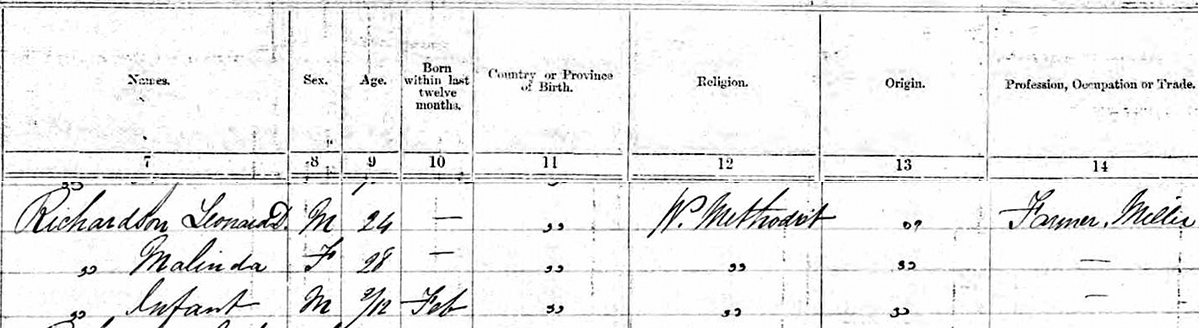 Names. Sex. Age. Born within last twelve months. Country or Province of Birth. Religion. Origin. Profession, Occupation or Trade.
7 8 9 10 11 12 13 14
Richardson Leonard D. M 24 — " W. Methodist " Farmer, Miller
" Malinda F 28 — " " " —
" Infant M 2/12 Feb " " " —